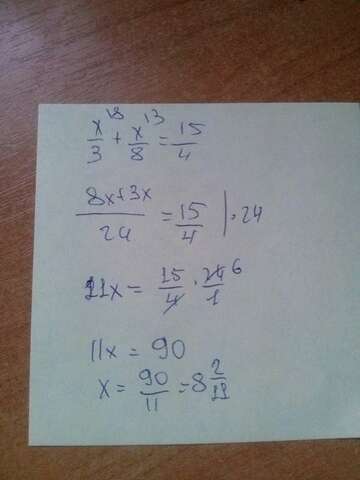 x/3 \8 + x/8 \3 = 15/4
8x+3x/24 = 15/4 | · 24
11x = 15/4 · 24/1 6
11x = 90
x = 90/11 = 8 2/11